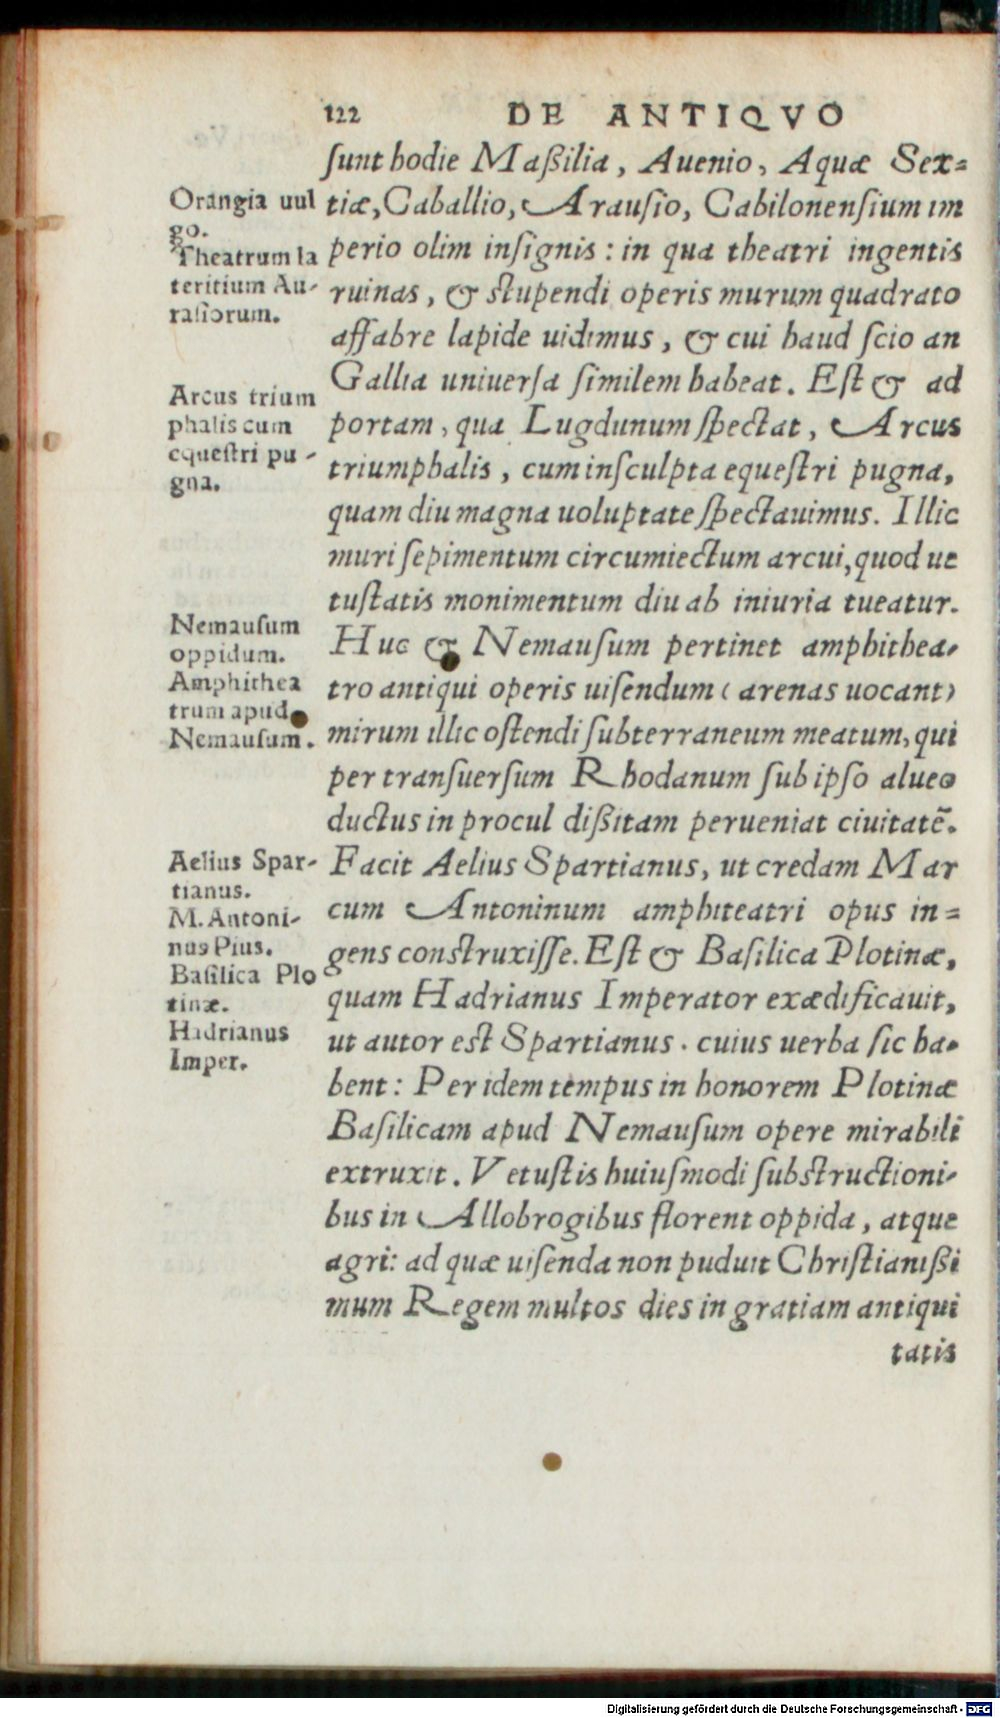 122 DE ANTIQVO
sunt hodie Maßilia, Auenio, Aquæ Sex=
tiæ, Caballio, Arausio, Cabilonensium im
perio olim insignis: in qua theatri ingentis
ruinas, & stupendi operis murum quadrato
affabre lapide uidimus, & cui haud scio an
Gallia uniuersa similem habeat. Est & ad
portam, qua Lugdunum spectat, Arcus
triumphalis, cum insculpta equestri pugna,
quam diu magna uoluptate spectauimus. Illic
muri sepimentum circumiectum arcui, quod ue
tustatis monimentum diu ab iniuria tueatur.
Huc & Nemausum pertinet amphithea-
tro antiqui operis uisendum (arenas uocant)
mirum illic ostendi subterraneum meatum, qui
per transuersum Rhodanum sub ipso alueo
ductus in procul dißitam perueniat ciuitatē.
Facit Aelius Spartianus, ut credam Mar
cum Antoninum amphiteatri opus in=
gens construxisse. Est & Basilica Plotinæ,
quam Hadrianus Imperator exædificauit,
ut autor est Spartianus. cuius uerba sic ha-
bent: Per idem tempus in honorem Plotinæ
Basilicam apud Nemausum opere mirabili
extruxit. Vetustis huiusmodi substructioni-
bus in Allobrogibus florent oppida, atque
agri: ad quæ uisenda non puduit Christianißi
mum Regem multos dies in gratiam antiqui
tatis
Orangia uul
go.
Theatrum la
teritium Au-
rasiorum.
Arcus trium
phalis cum
equestri pu-
gna.
Nemausum
oppidum.
Amphithea
trum apud
Nemausum.
Aelius Spar-
tianus.
M. Antoni-
nus Pius.
Basilica Plo
tinæ.
Hadrianus
Imper.
Digitalisierung gefördert durch die Deutsche Forschungsgemeinschaft - DFG